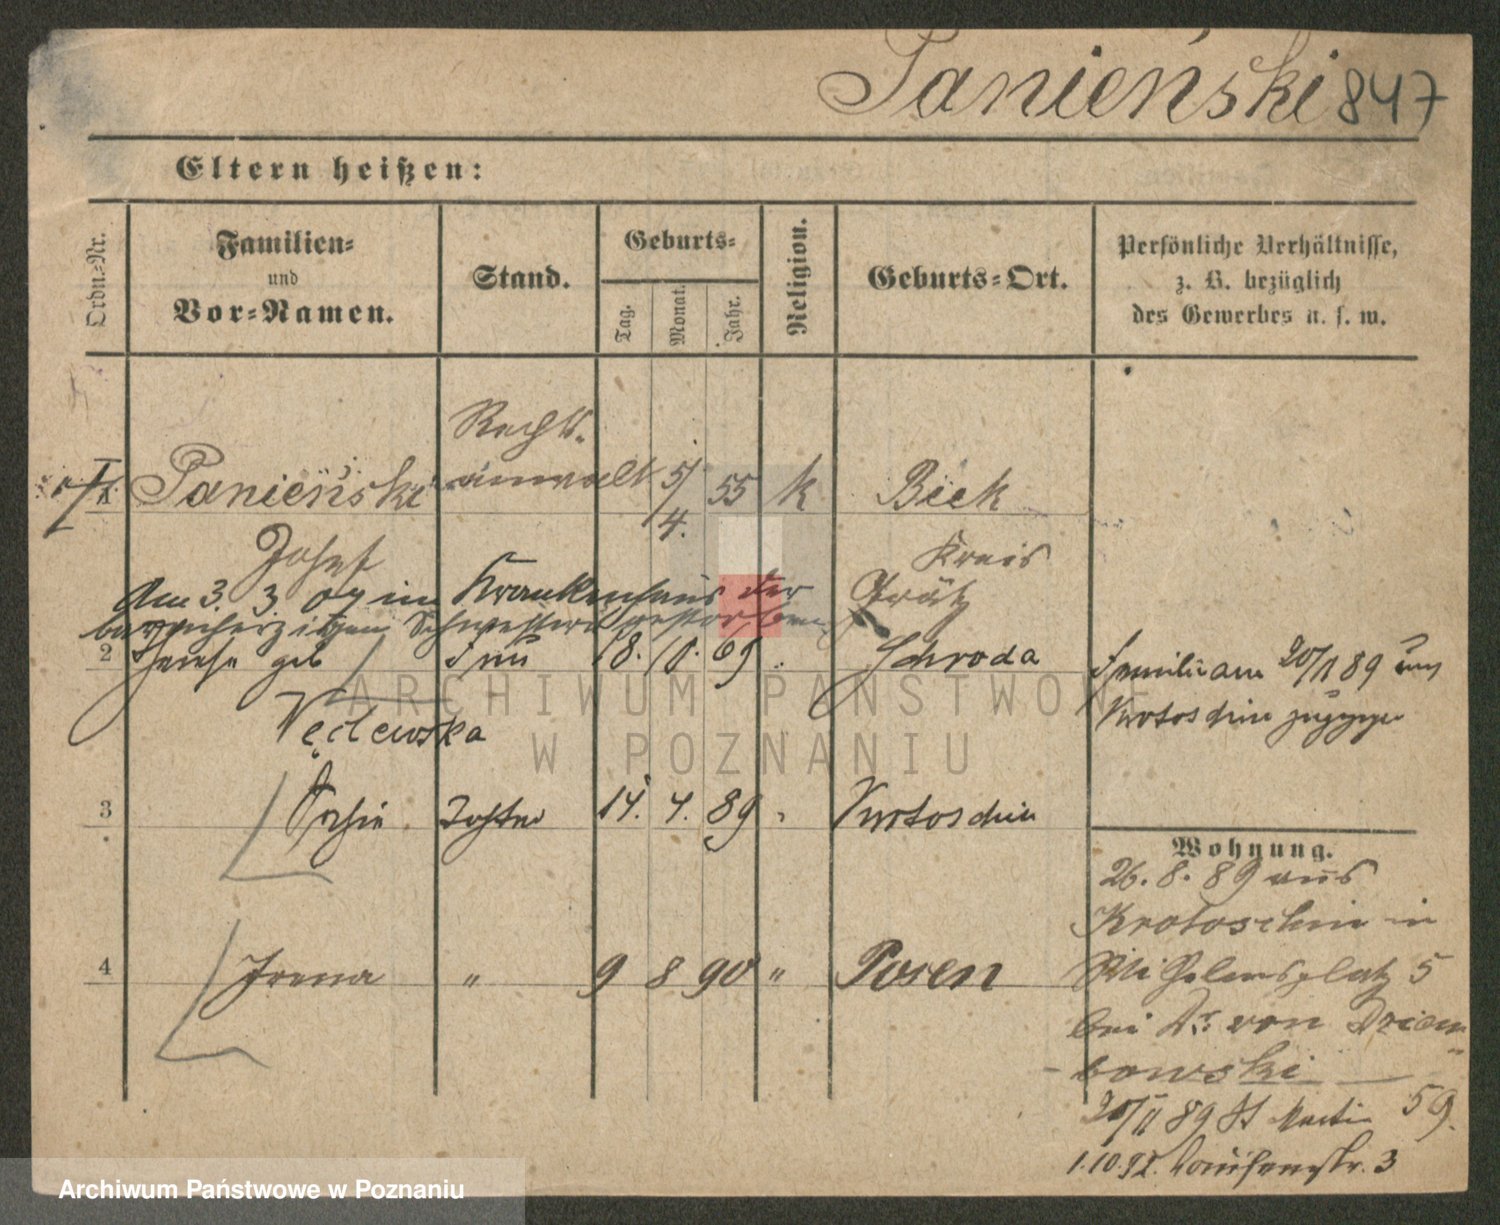 Panieński 847
Eltern heißen:
Ordn.=Nr.
Familien=
und
Vor=Namen.
Stand.
Geburts=
Tag.
Monat.
Jahr.
Religion.
Geburts=Ort.
Persönliche Verhältnisse,
z. B. bezüglich
des Gewerbes u. s. w.
Rechts-
1 Panieński anwalt 5/4. 55 k Biek
Josef Kreis
Grätz
Am 3. 3. 07 im Krankenhaus der
barmherzigen Schwestern gestorben
2 geb Frau 18. 10. 69 " Schroda
Węclewska
Familie am 20/11 89 aus
Krotoschin
3 Tochter 14. 4. 89 " Krotoschin
4 Irena " 9 8 90 " Posen
Wohnung.
26. 8. 89 aus
Krotoschin in
Wilhelmsplatz 5
bei Dr. von Dziem-
bowski
20/11 89 St Martin 59.
1.10.91. Louisenstr. 3
ARCHIWUM PAŃSTWOWE
W POZNANIU
Archiwum Państwowe w Poznaniu